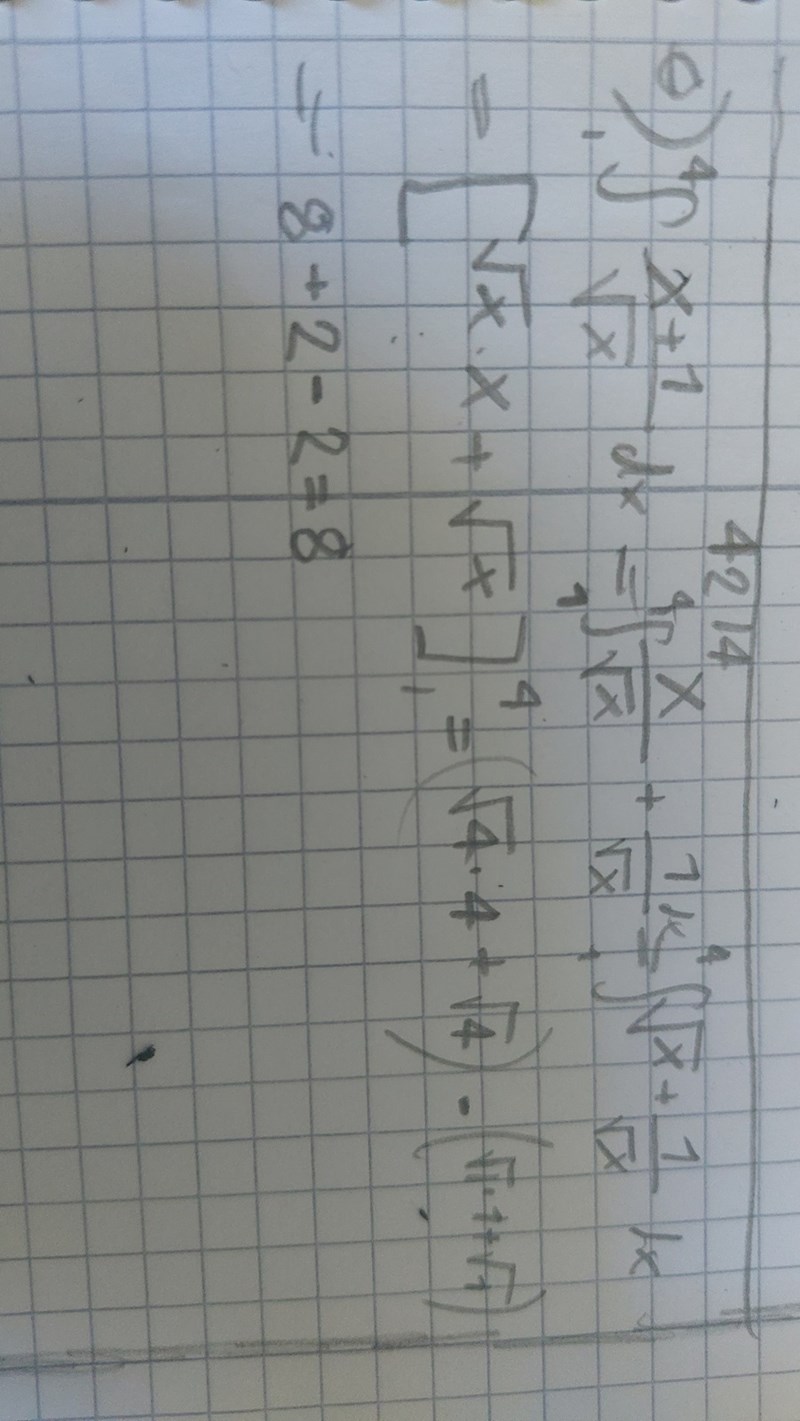 4214
e) ₁⁴∫ (x+1)/√x dx = ₁⁴∫ x/√x + 1/√x dx = ₁⁴∫ √x + 1/√x dx
= [√x · x + √x]₁⁴ = (√4 · 4 + √4) - (√1 · 1 + √1)
= 8 + 2 - 2 = 8